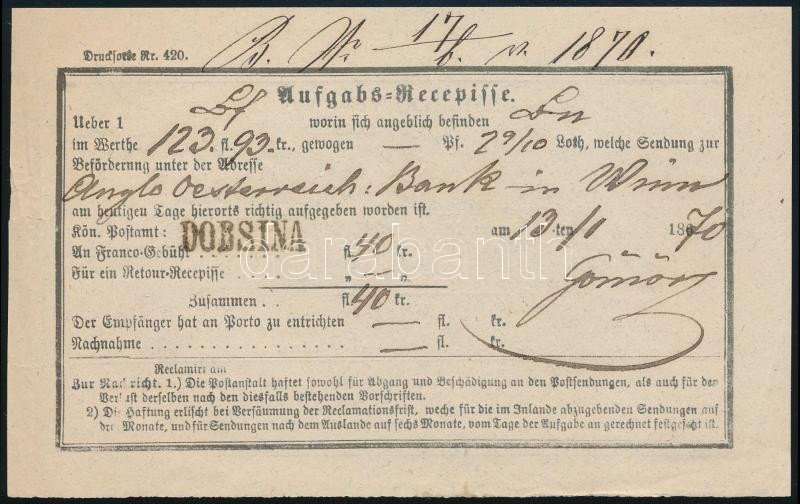 B. Nr. 17/6. v. 1870.
Drucksorte Nr. 420.
Aufgabs=Recepisse.
Ueber 1 Bf worin sich angeblich befinden Bn
im Werthe 123 fl. 93. kr., gewogen — Pf. 2 9/10 Loth, welche Sendung zur
Beförderung unter der Adresse
Anglo Oesterreich: Bank in Wien
am heutigen Tage hierorts richtig aufgegeben worden ist.
Kön. Postamt: DOBSINA am 13 ten /1 1870
An Franco-Gebühr . . . fl. 40 kr.
Für ein Retour-Recepisse . . . „ — „
Gömöry
Zusammen . . fl. 40 kr.
Der Empfänger hat an Porto zu entrichten — fl. kr.
Nachnahme — fl. kr.
Reclamirt am
Zur Nachricht. 1.) Die Postanstalt haftet sowohl für Abgang und Beschädigung an den Postsendungen, als auch für den
Verlust derselben nach den diesfalls bestehenden Vorschriften.
2) Die Haftung erlischt bei Versäumung der Reclamationsfrist, weche für die im Inlande abzugebenden Sendungen auf
drei Monate, und für Sendungen nach dem Auslande auf sechs Monate, vom Tage der Aufgabe an gerechnet festgesetzt ist.
darabanth